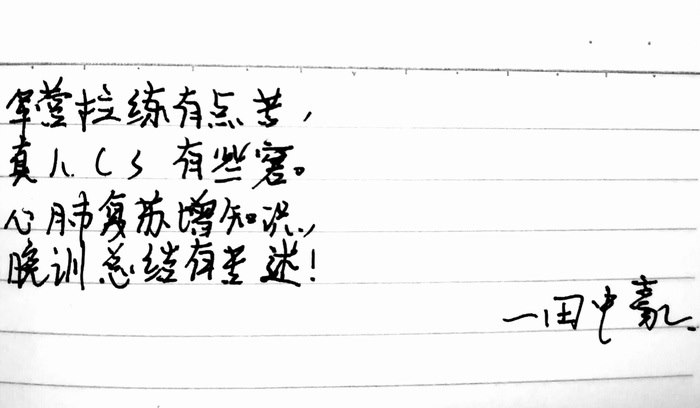 军营拉练有点苦，
真人CS有些累。
心肺复苏增知识，
晚训总结有苦述！
—田中豪